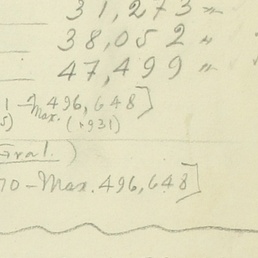 31,273 "
38,052 "
47,499 "
1 → 496,648]
5) Max. (1931)
Gral.)
70 - Max. 496,648]